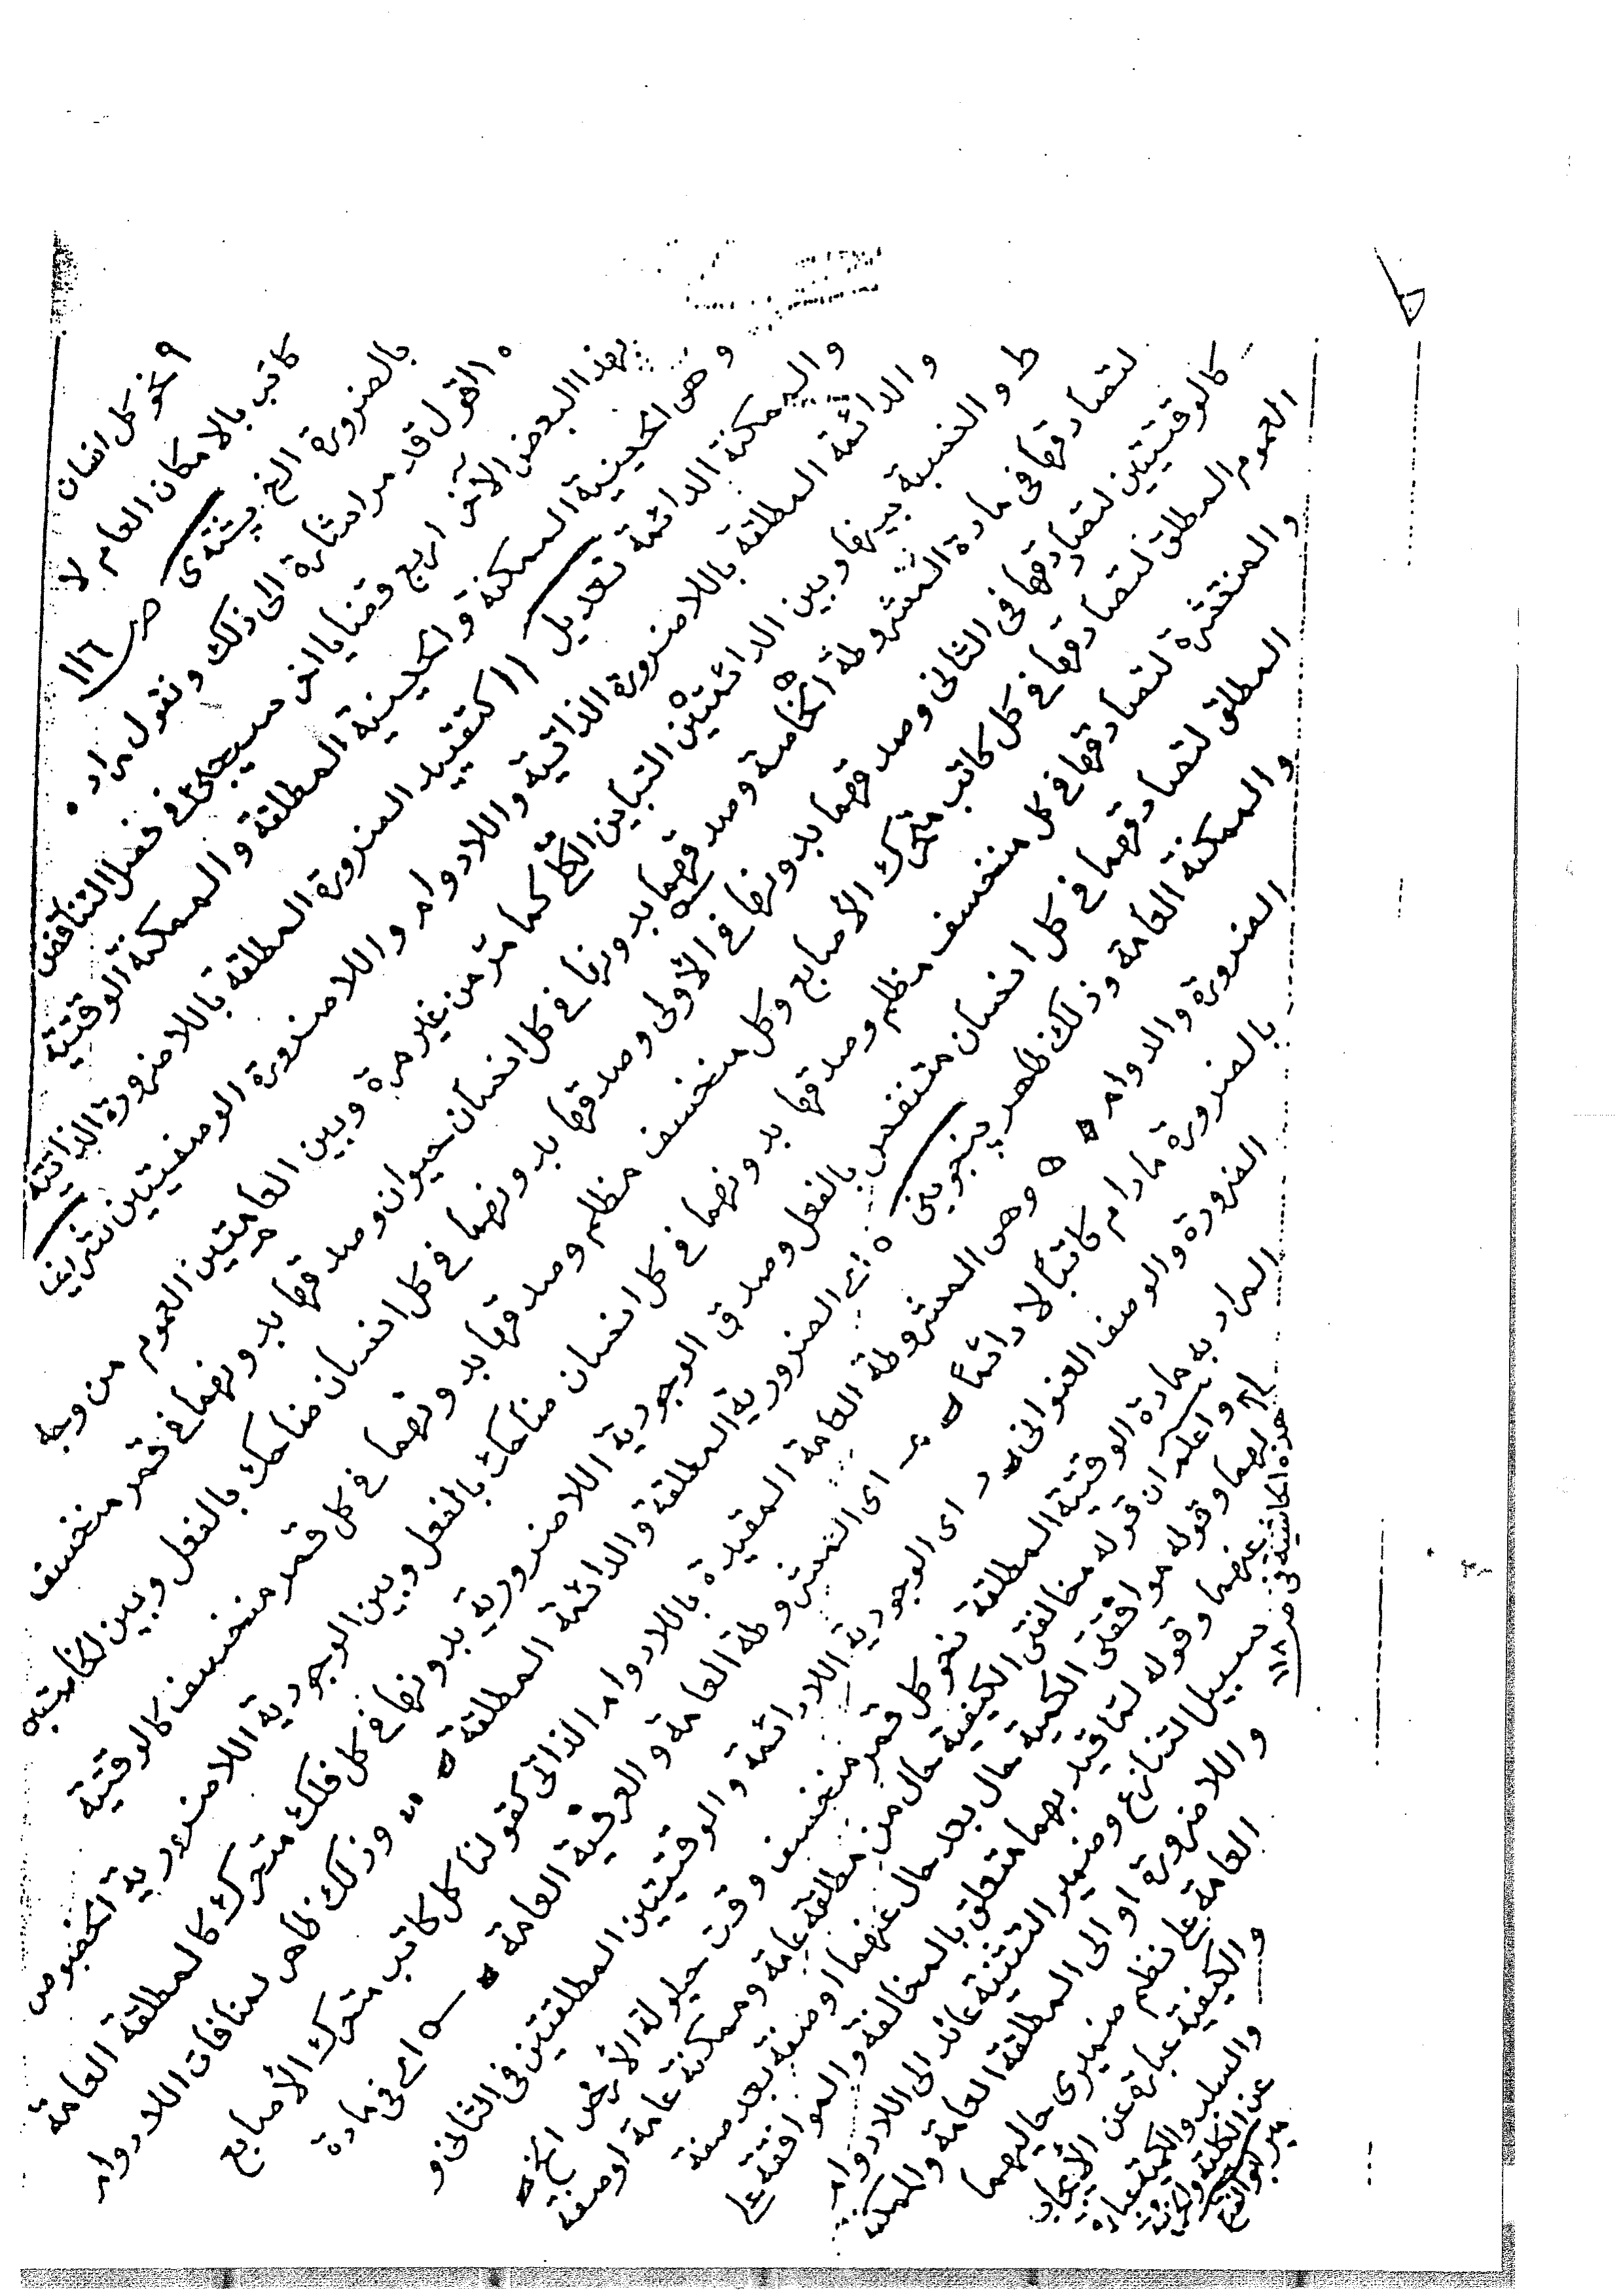 ونحو كل انسان
كاتب بالامكان العام لا
بالضرورة الخ پشتدى صـ ١١٦
القول قد مر اشارة الى ذلك ونقول مراده
بهذا البعض الآخر اربع قضايا التى سيجئ في فصل التناقض
وهى الحينية الممكنة والحينية المطلقة والممكنة الوقتية
والممكنة الدائمة تعديل // كتقييد الضرورة المطلقة باللاضرورة الذاتية
والدائمة المطلقة باللاضرورة الذاتية واللادوام واللاضرورة الوصفيتين شريف
ط والنسبة بينها وبين الدائمتين التباين الكلي كما مر من غير مرة وبين العامتين العموم من وجه
لتصادقها فى مادة المشروطة الخاصة وصدقهما بدونها في كل انسان حيوان وصدقها بدونهما في قمر منخسف
كالوقتيتين لتصادقها فى الثانى وصدقهما بدونها في الأولى وصدقها بدونهما في كل انسان ضاحك بالفعل وبين الخاصتين
العموم المطلق لتصادقها في كل كاتب متحرك الأصابع وكل منخسف مظلم وصدقها بدونهما في كل قمر منخسف كالوقتية
والمنتشرة لتصادقها في كل منخسف مظلم وصدقها بدونهما في كل انسان ضاحك بالفعل وبين الوجودية اللاضرورية الخصوص
المطلق لتصادقهما في كل انسان متنفس بالفعل وصدق الوجودية اللاضرورية بدونها في كل فلك متحرك كالمطلقة العامة
والممكنة العامة وذلك ظهر پنجوينى ه اي الضرورية المطلقة والدائمة المطلقة ه وذلك ظاهر لمنافات اللادوام
الضرورة والدوام ه ه وهى المشروطة العامة المقيدة باللادوام الذاتى كقولنا كل كاتب متحرك الأصابع
بالضرورة مادام كاتبًا لا دائمًا ه اى المشروطة العامة والعرفية العامة ه اي فى مادة
الضرورة والوصف العنوانى اى الوجودية اللادائمة والوقتيتين المطلقتين فى الثانى و
المراد به مادة الوقتية المطلقة نحو كل قمر منخسف وقت حيلولة الأرض الخ ه
واعلم ان قوله مخالفتى الكيفية حال من مطلقة عامة وممكنة عامة او صفة
لهما وقوله موافقتى الكمية حال بعد حال عنهما او صفة بعد صفة
عنهما وقوله لما قيد بهما متعلق بالمخالفة والموافقة على
سبيل التنازع وضمير التثنية عائد الى اللادوام
واللاضرورة او الى المطلقة العامة والممكنة
العامة على نظم ضميرى حاليهما
والكيفية عبارة عن الأيجاب
والسلب والكمية عبارة
عن الكلية والجزئية
هذه الحاشية فى صـ ١١٨